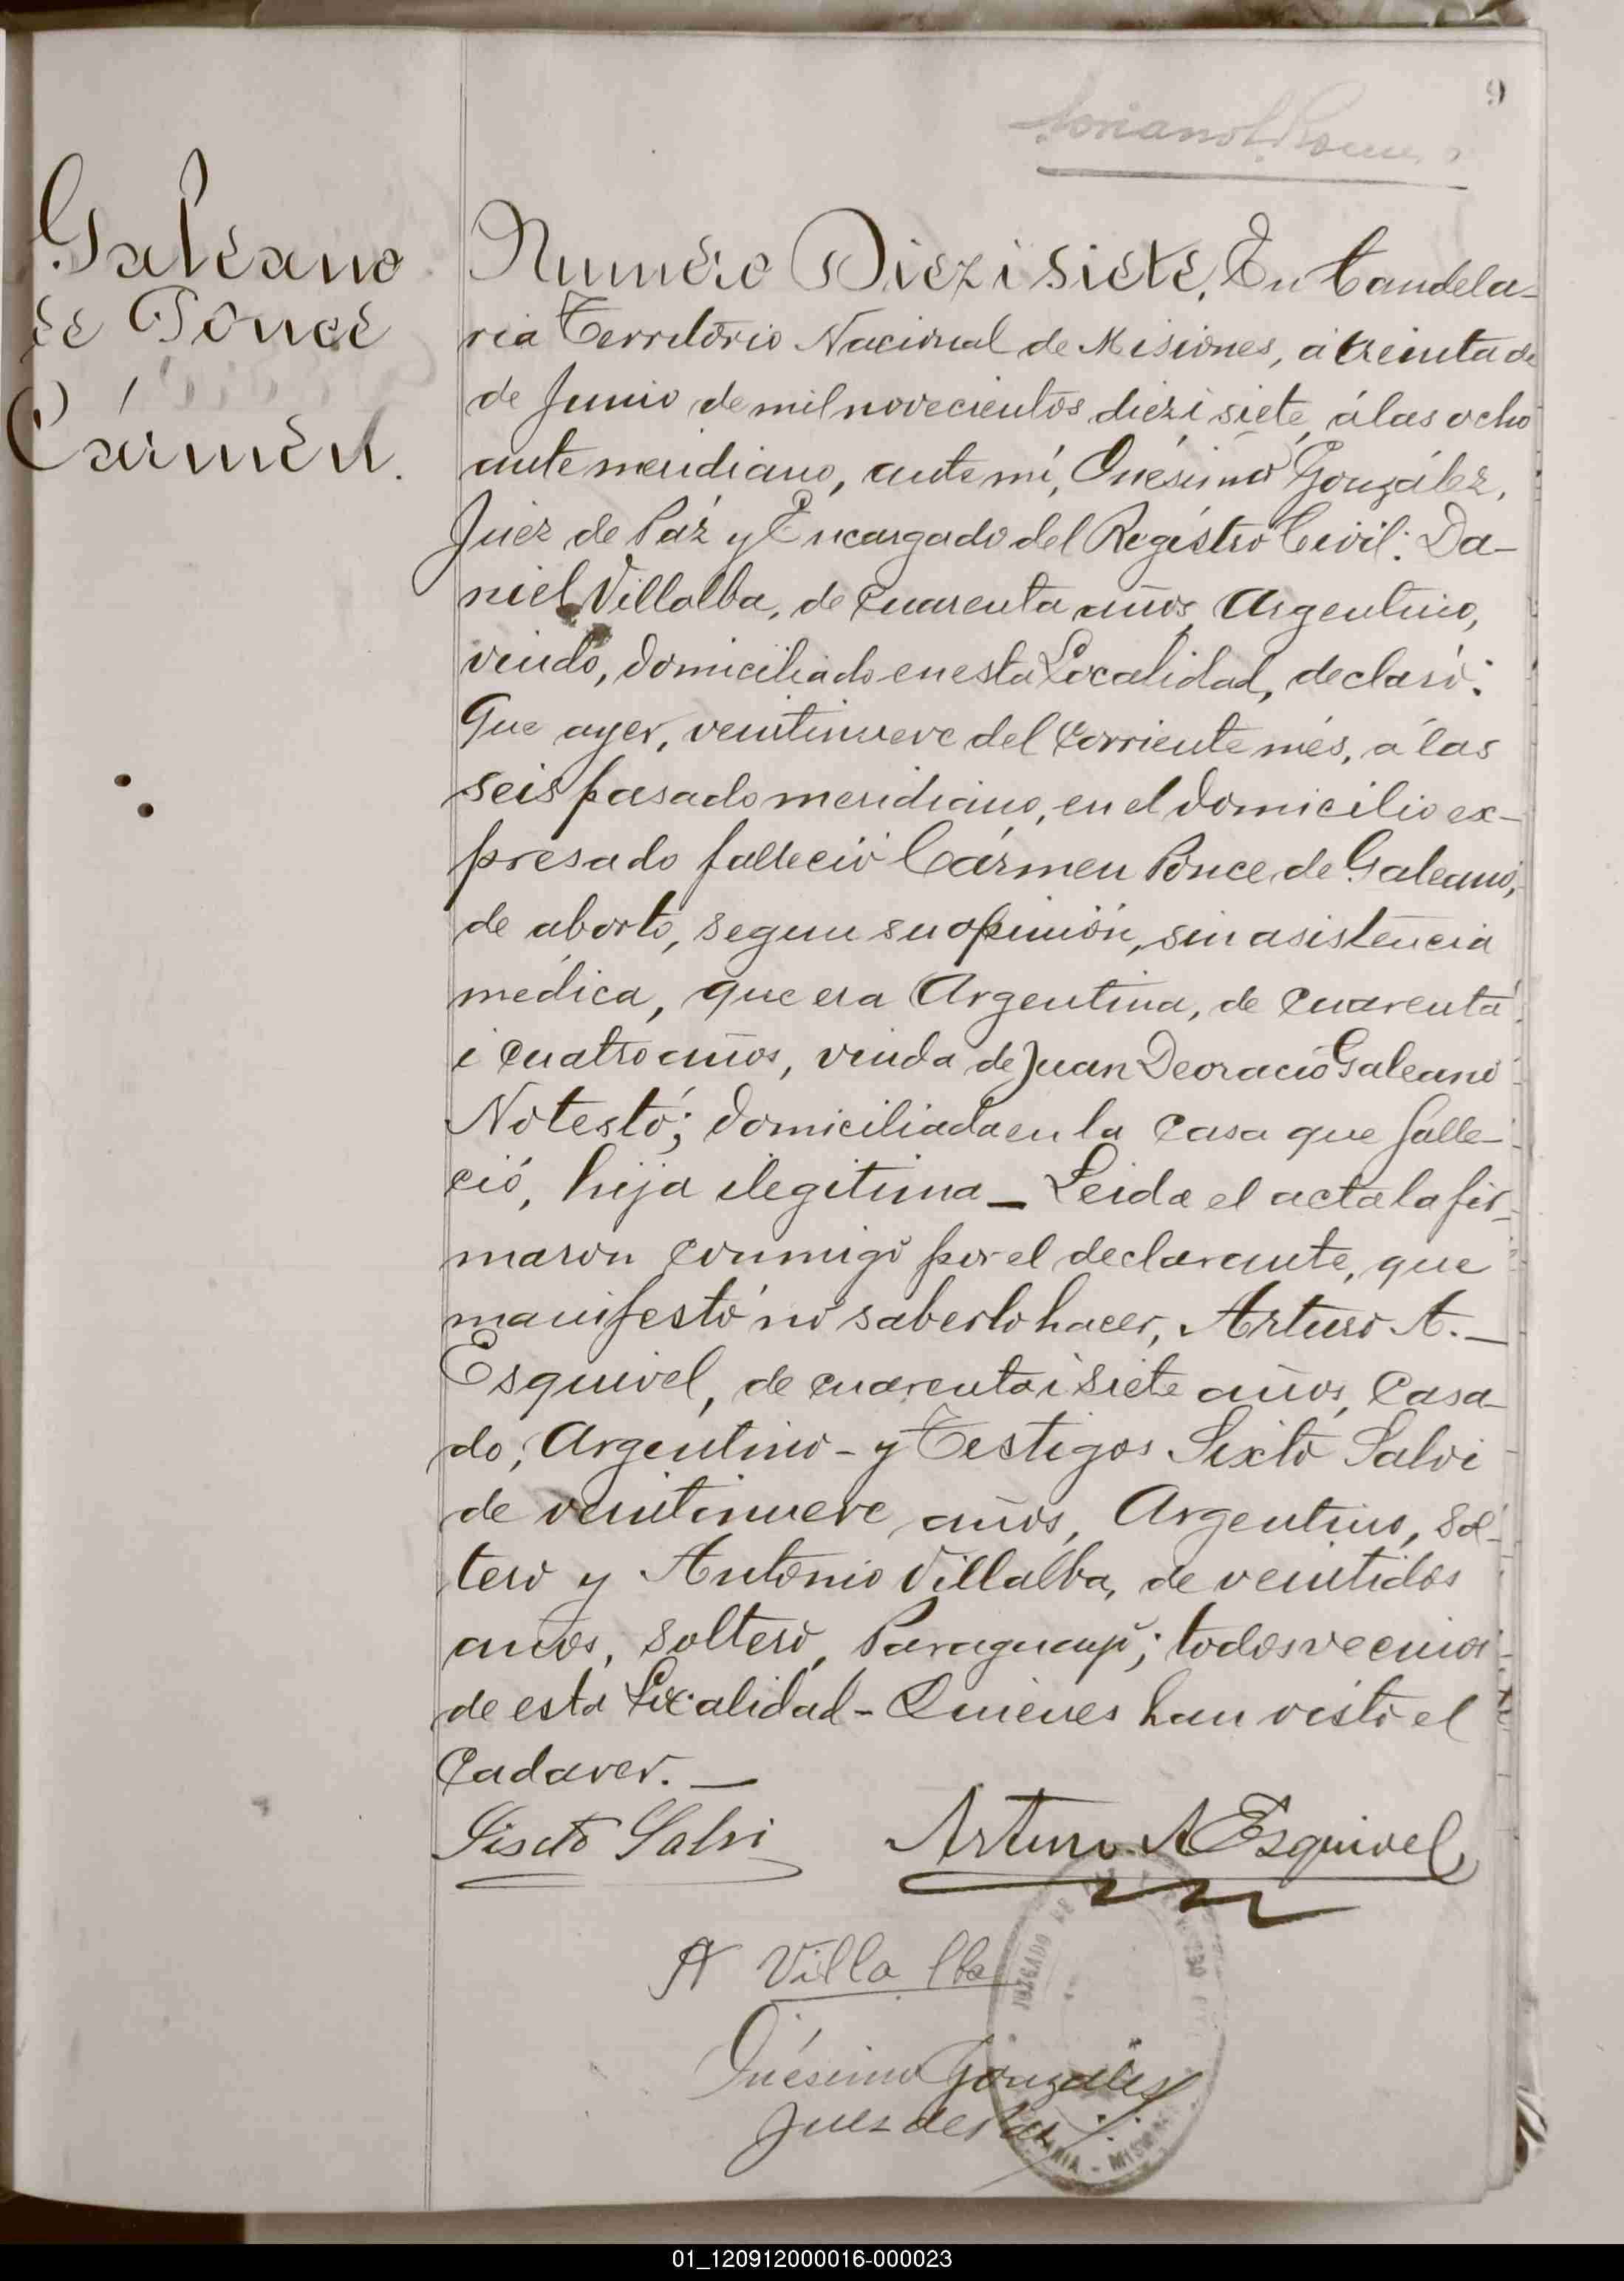 9
Galeano
de Ponce
Cármen.
Numero Diezisiete, En Candela-
ria Territorio Nacional de Misiones, á treinta de
de Junio de mil novecientos diezisiete, á las ocho
ante meridiano, ante mí, Onésimo González,
Juez de Páz y Encargado del Registro Civil: Da-
niel Villalba, de cuarenta años, Argentino,
viudo, domiciliado en esta Localidad, declaró:
Que ayer, veintinueve del corriente més, a las
seis pasado meridiano, en el domicilio ex-
presado falleció Cármen Ponce de Galeano,
de aborto, segun su opinión, sin asistencia
médica, que era Argentina, de cuarenta
i cuatro años, viuda de Juan Deoracio Galeano
No testó; domiciliada en la casa que falle-
ció, hija ilegitima - Leida el acta la fir-
maron conmigo por el declarante, que
manifestó no saberlo hacer, Arturo A. -
Esquivel, de cuarenta i siete años, casa-
do, Argentino - y Testigos Sixto Salvi
de veintinueve años, Argentino, sol-
tero y Antonio Villalba, de veintidos
años, soltero, Paraguayo; todos vecinos
de esta Localidad - Quienes han visto el
cadaver. -
Sixto Salvi Arturo A Esquivel
A Villalba
Onésimo González
Juez de Paz
JUZGADO DE PAZ
MISIONES
01_120912000016-000023